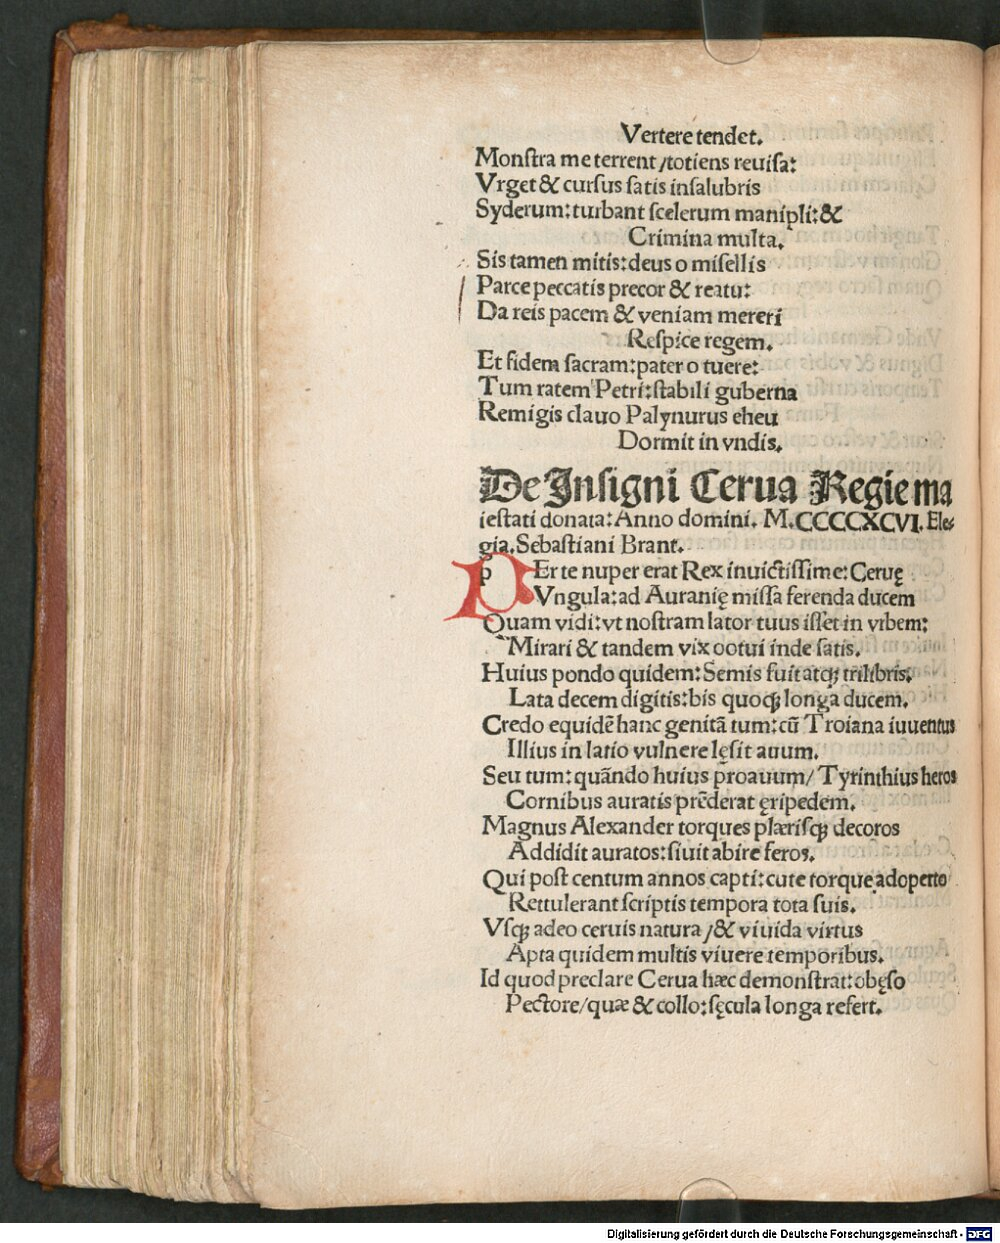 Vertere tendet.
Monſtra me terrent /totiens reuiſa:
Vrget & curſus ſatis inſalubris
Syderum: turbant ſcelerum manipli: &
Crimina multa.
Sis tamen mitis: deus o miſellis
Parce peccatis precor & reatu:
Da reis pacem & veniam mereri
Reſpice regem.
Et fidem ſacram: pater o tuere:
Tum ratem Petri: ſtabili guberna
Remigis clauo Palynurus eheu
Dormit in vndis.
De Inſigni Cerua Regie ma
ieſtati donata: Anno domini. M.CCCCXCVI. Ele⸗
gia. Sebaſtiani Brant.
PEr te nuper erat Rex inuictiſſime: Ceruę
Vngula: ad Auranię miſſa ferenda ducem
Quam vidi: vt noſtram lator tuus iſſet in vrbem:
Mirari & tandem vix ootui inde ſatis.
Huius pondo quidem: Semis fuit atqꝫ trilibris.
Lata decem digitis: bis quoqꝫ longa ducem.
Credo equidē hanc genitā tum: cū Troiana iuuentus
Illius in latio vulnere lęſit auum.
Seu tum: quādo huius proauum/ Tyrinthius heros
Cornibus auratis prēderat ęripedem.
Magnus Alexander torques plæriſqꝫ decoros
Addidit auratos: ſiuit abire feros.
Qui poſt centum annos capti: cute torque adoperto
Rettulerant ſcriptis tempora tota ſuis.
Vſqꝫ adeo ceruis natura /& viuida virtus
Apta quidem multis viuere temporibus.
Id quod preclare Cerua hæc demonſtrat: obęſo
Pectore/quæ & collo: ſęcula longa refert.
Digitalisierung gefördert durch die Deutsche Forschungsgemeinschaft - DFG